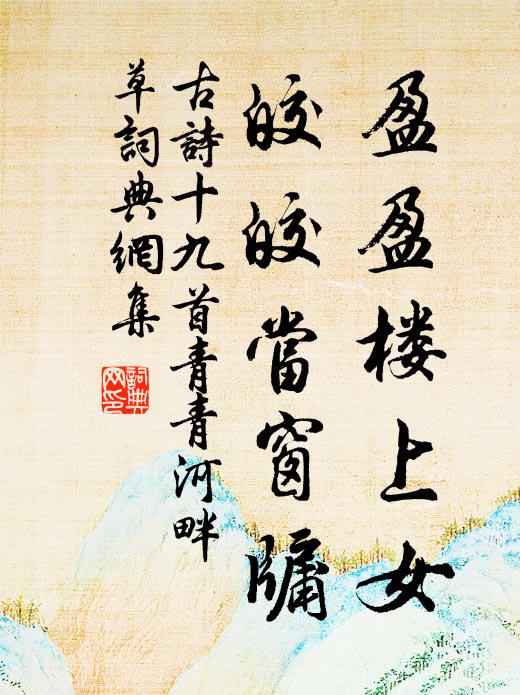 盈盈楼上女
皎皎當窗牖
古詩十九首青青河畔
草詞典網集
詞典
网印